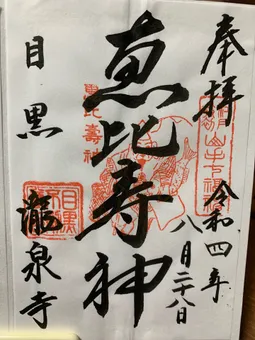 奉拝
令和四年
八月二十八日
恵比寿神
恵比壽神
目黒
瀧泉寺